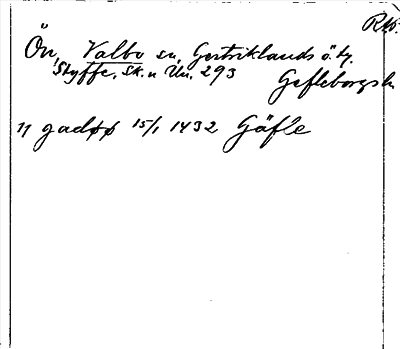 RAP.
Ön, Valbo sn, Gestriklands ö. tg.
Styffe, Sk. u Un. 293 Gefleborgs l.
17 gadøø 15/1 1432 Gäfle